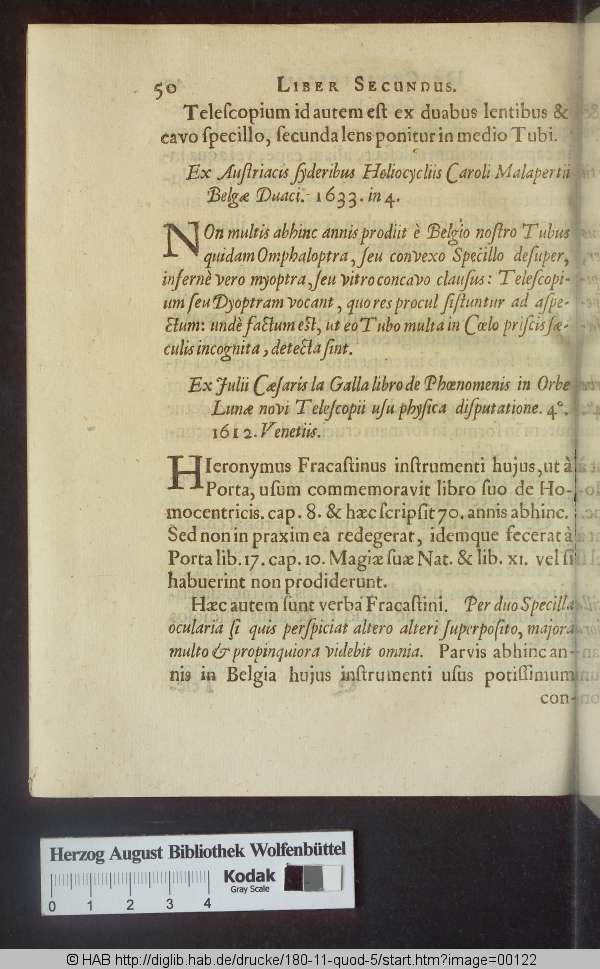 50 LIBER SECUNDUS.
Teleſcopium id autem eſt ex duabus lentibus &
cavo ſpecillo, ſecunda lens ponitur in medio Tubi.
Ex Auſtriacis ſyderibus Heliocycliis Caroli Malapertii
Belgæ Duaci. 1633. in 4.
NOn multis abhinc annis prodiit è Belgio noſtro Tubus
quidam Omphaloptra, ſeu convexo Specillo deſuper,
infernè vero myoptra, ſeu vitro concavo clauſus: Teleſcopi-
um ſeu Dyoptram vocant, quo res procul ſiſtuntur ad aſpe-
ctum: undè factum eſt, ut eo Tubo multa in Cœlo priſcis ſæ-
culis incognita, detecta ſint.
Ex Julii Cæſaris la Galla libro de Phœnomenis in Orbe
Lunæ novi Teleſcopii uſu phyſica diſputatione. 4°.
1612. Venetiis.
HIeronymus Fracaſtinus inſtrumenti hujus, ut à
Porta, uſum commemoravit libro ſuo de Ho-
mocentricis. cap. 8. & hæc ſcripſit 70. annis abhinc.
Sed non in praxim ea redegerat, idemque fecerat à
Porta lib. 17. cap. 10. Magiæ ſuæ Nat. & lib. XI. vel ſi
habuerint non prodiderunt.
Hæc autem ſunt verba Fracaſtini. Per duo Specilla
ocularia ſi quis perſpiciat altero alteri ſuperpoſito, majora
multo & propinquiora videbit omnia. Parvis abhinc an-
nis in Belgia hujus inſtrumenti uſus potiſſimum
con-
Herzog August Bibliothek Wolfenbüttel
Kodak
Gray Scale
0 1 2 3 4
© HAB http://diglib.hab.de/drucke/180-11-quod-5/start.htm?image=00122